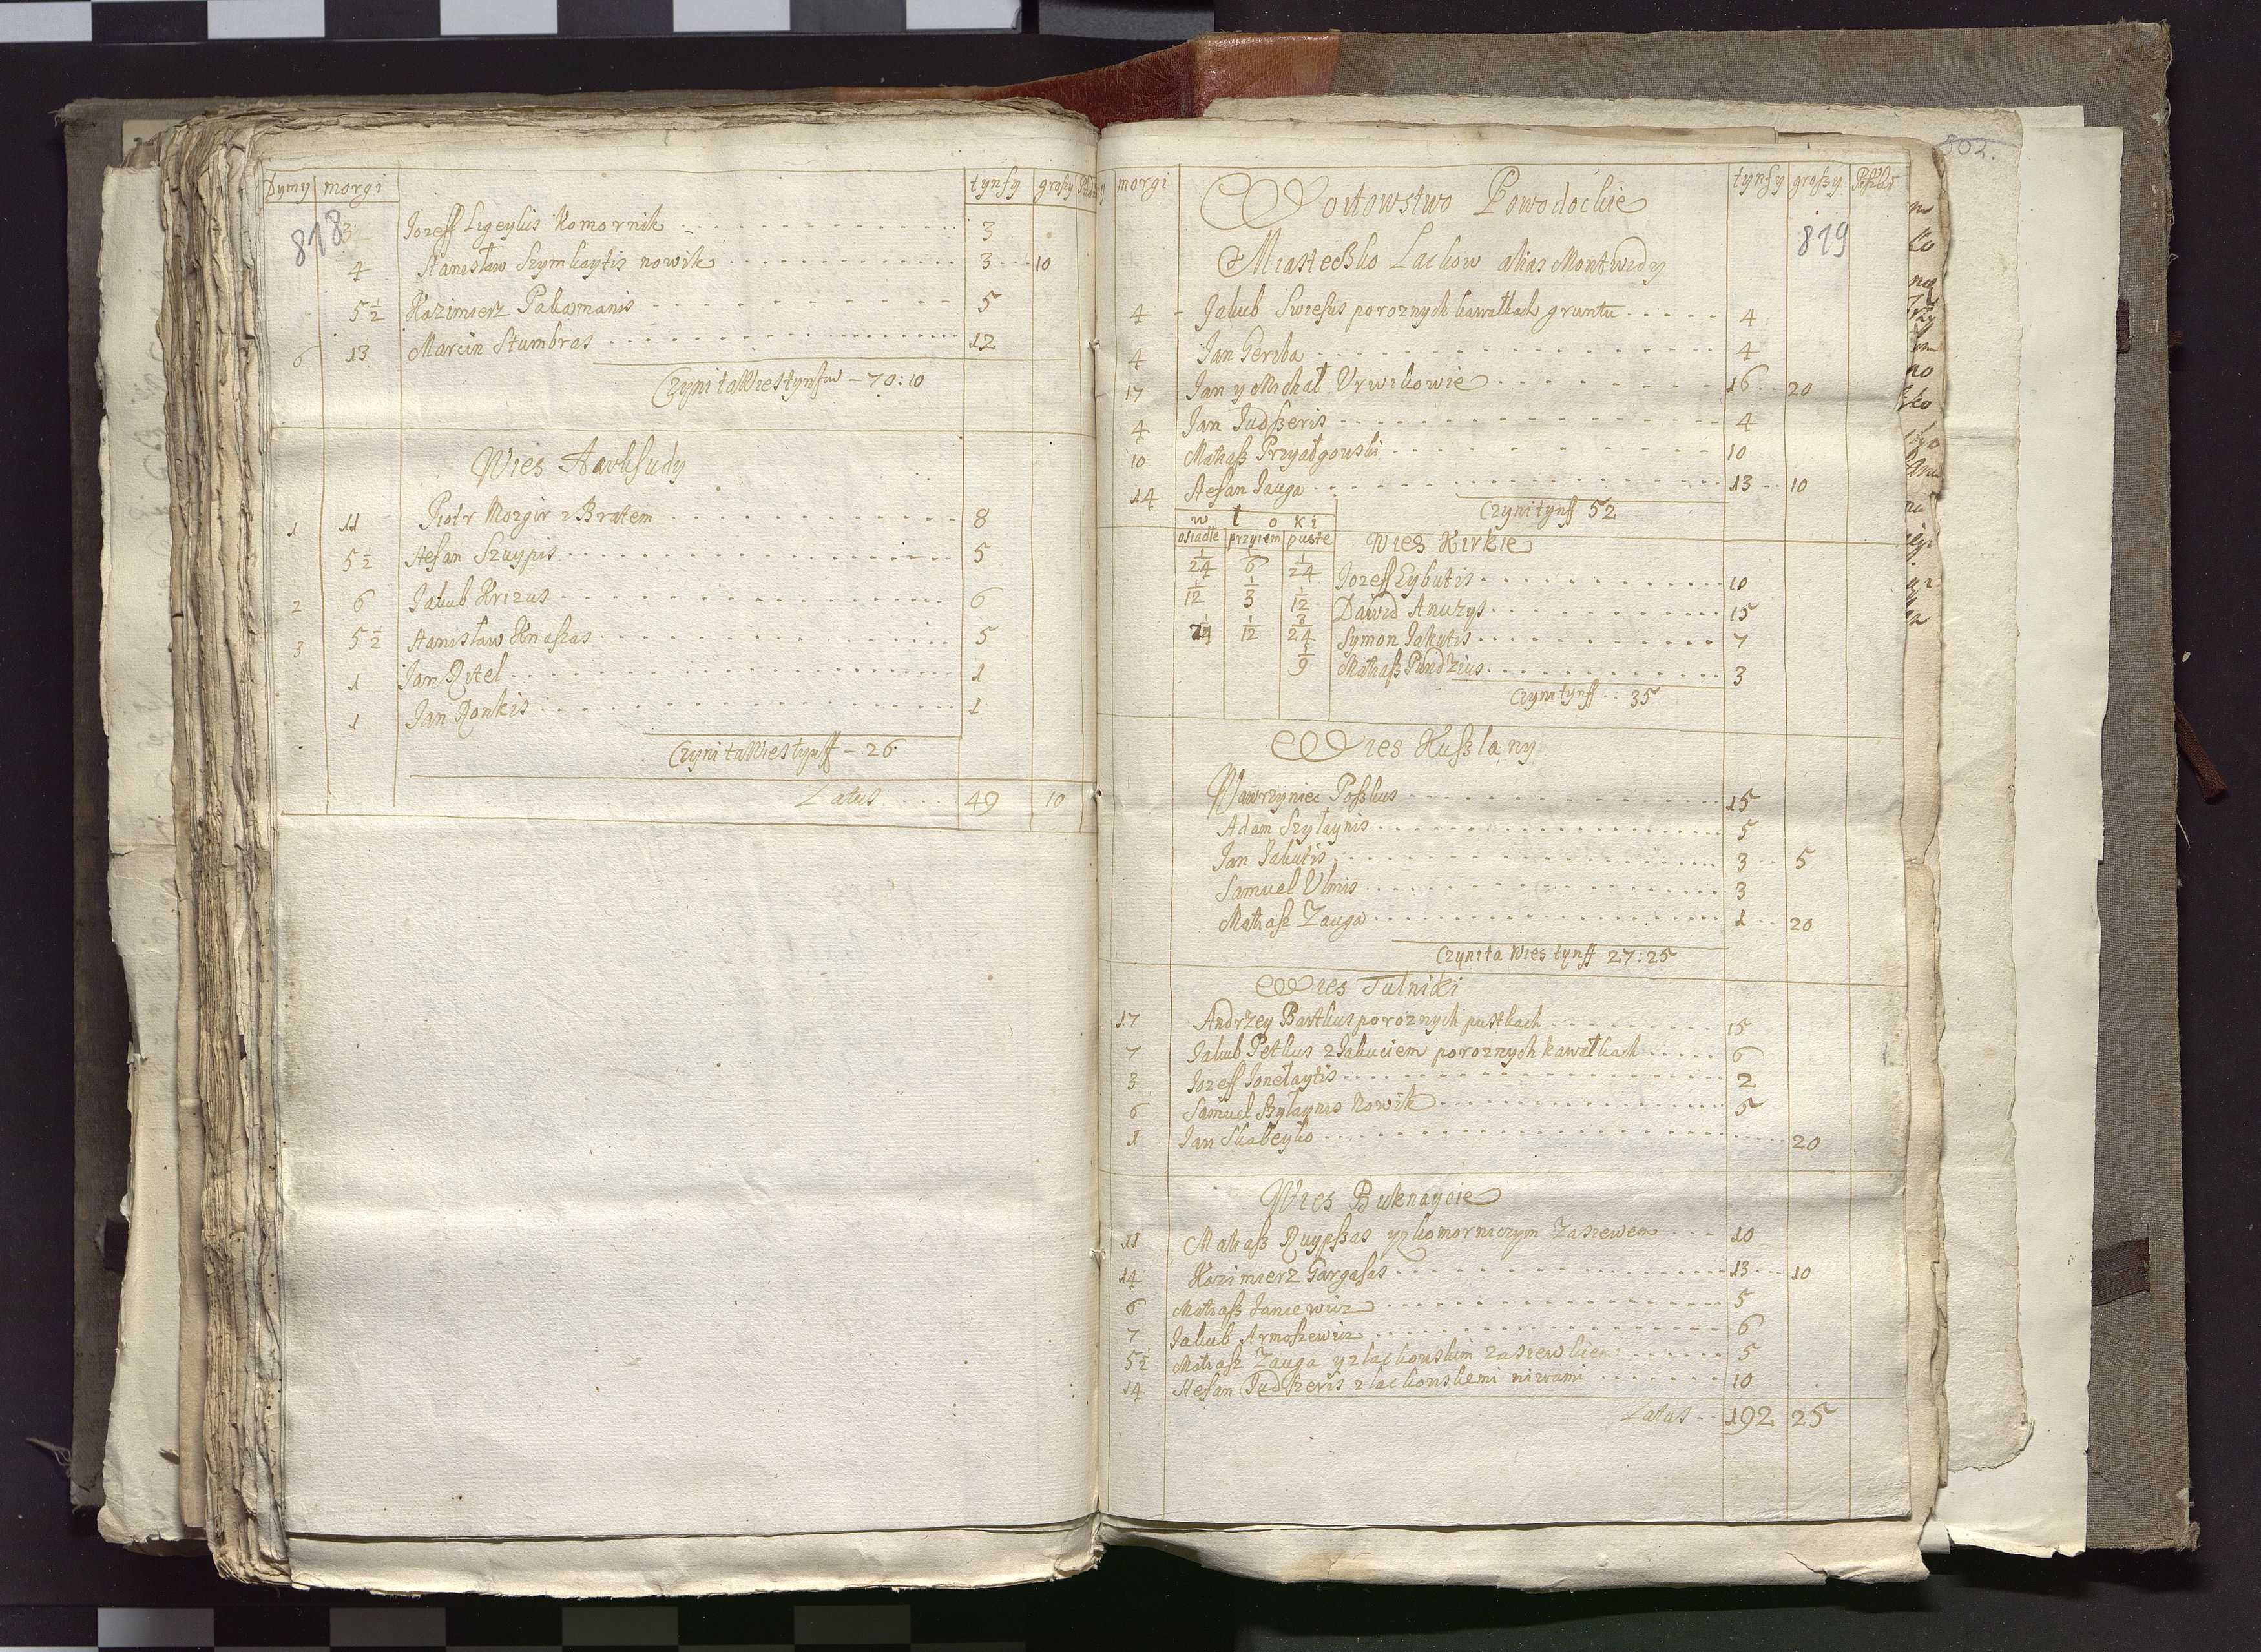 Dymy morgi tynfy groszy
818
3 Jozeff Ligeylis Komornik 3
4 Stanisław Szymkaytis nowik 3 10
5½ Kazimierz Pakamanis 5
6 13 Marcin Stumbras 12
Czyni ta Wies tynfow – 70:10
Wies Aavksudy
1 11 Piotr Mozgir z Bratem 8
5½ Stefan Szuypis 5
2 6 Jakub Krizus 6
3 5½ Stanisław Knaszas 5
1 Jan Ritel 1
1 Jan Ronkis 1
Czyni ta Wies tynff – 26
Latus 49 10
502.
morgi tynfy groszy
Woitowstwo Powodockie
819
Miasteczko Lackow alias Montwidy
4 Jakub Swiesus po roznych kawałkach gruntu 4
4 Jan Geruba 4
17 Jan y Michał Urwikowie 16 20
4 Jan Judszeris 4
10 Matiasz Przyałgouski 10
14 Stefan Jauga 13 10
Czyni tynff 52
w ł o k i
osiadłe przyiem puste
Wies Kirkie
1/24 1/6 1/24 Jozeff Eybutis 10
1/12 1/3 1/12 Dawid Anuzys 15
1/24 1/12 3/24 Symon Jakutis 7
1/9 Matiasz Pundzius 3
Czyni tynff 35
Wies Kuszlany
Wawrzyniec Poszkus 15
Adam Szyłaynis 5
Jan Jakutis 3 5
Samuel Ulmis 3
Matiasz Zauga 1 20
Czyni ta Wies tynff 27:25
Wies Tulniki
17 Andrzey Bartkus po roznych pustkach 15
7 Jakub Petkus z Jakuciem po roznych kawałkach 6
3 Jozeff Jonełaytis 2
6 Samuel Szyłaynis Nowik 5
1 Jan Skabeyko 20
Wies Buknaycie
11 Matiasz Ruypszas y z komorniczym Zasiewem 10
14 Kazimierz Gargasas 13 10
6 Matiasz Janiewicz 5
7 Jakub Armoszewicz 6
5½ Matiasz Zauga y z lackouskim zasiewkiem 5
14 Stefan Judszeris z lackouskiemi niwami 10
Latus 192 25